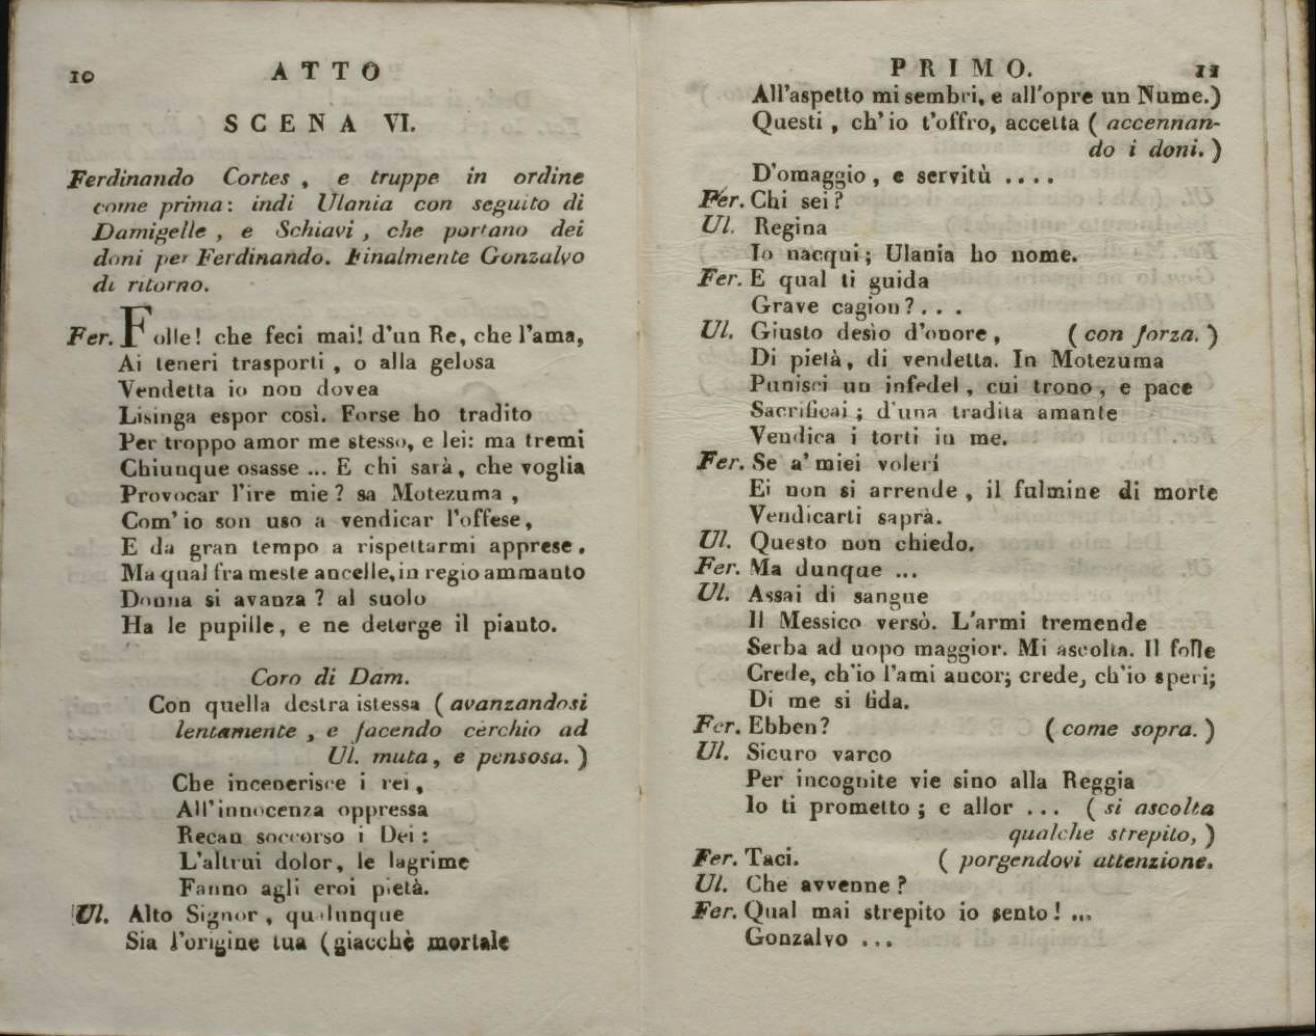 10
ATTO
SCENA VI.
Ferdinando Cortes , e truppe in ordine
come prima: indi Ulania con seguito di
Damigelle , e Schiavi , che portano dei
doni per Ferdinando. Finalmente Gonzalvo
di ritorno.
Fer. Folle! che feci mai! d'un Re, che l'ama,
Ai teneri trasporti , o alla gelosa
Vendetta io non dovea
Lisinga espor così. Forse ho tradito
Per troppo amor me stesso, e lei: ma tremi
Chiunque osasse ... E chi sarà, che voglia
Provocar l'ire mie? sa Motezuma ,
Com' io son uso a vendicar l'offese,
E da gran tempo a rispettarmi apprese.
Ma qual fra meste ancelle, in regio ammanto
Donna si avanza ? al suolo
Ha le pupille, e ne deterge il pianto.
Coro di Dam.
Con quella destra istessa ( avanzandosi
lentamente , e facendo cerchio ad
Ul. muta, e pensosa. )
Che incenerisce i rei,
All'innocenza oppressa
Recan soccorso i Dei :
L'altrui dolor, le lagrime
Fanno agli eroi pietà.
Ul. Alto Signor , qualunque
Sia l'origine tua (giacchè mortale
PRIMO.
11
All'aspetto mi sembri, e all'opre un Nume.)
Questi , ch' io t'offro, accetta ( accennan-
do i doni. )
D'omaggio , e servitù ....
Fer. Chi sei?
Ul. Regina
Io nacqui; Ulania ho nome.
Fer. E qual ti guida
Grave cagion? . . .
Ul. Giusto desìo d'onore, ( con forza. )
Di pietà, di vendetta. In Motezuma
Punisci un infedel, cui trono, e pace
Sacrificai ; d'una tradita amante
Vendica i torti in me.
Fer. Se a' miei voleri
Ei non si arrende , il fulmine di morte
Vendicarti saprà.
Ul. Questo non chiedo.
Fer. Ma dunque ...
Ul. Assai di sangue
Il Messico versò. L'armi tremende
Serba ad uopo maggior. Mi ascolta. Il folle
Crede, ch'io l'ami ancor; crede, ch'io speri;
Di me si fida.
Fer. Ebben? ( come sopra. )
Ul. Sicuro varco
Per incognite vie sino alla Reggia
Io ti prometto ; e allor ... ( si ascolta
qualche strepito, )
Fer. Taci. ( porgendovi attenzione.
Ul. Che avvenne ?
Fer. Qual mai strepito io sento! ...
Gonzalvo ...